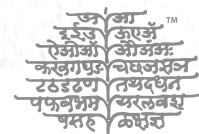 अ आ ™
इईउ ऊएॲ
औअंअः
कखगघङ चछजझञ
टठडढण तथदधन
पफबभम यरलवश
षसह ळक्षज्ञ